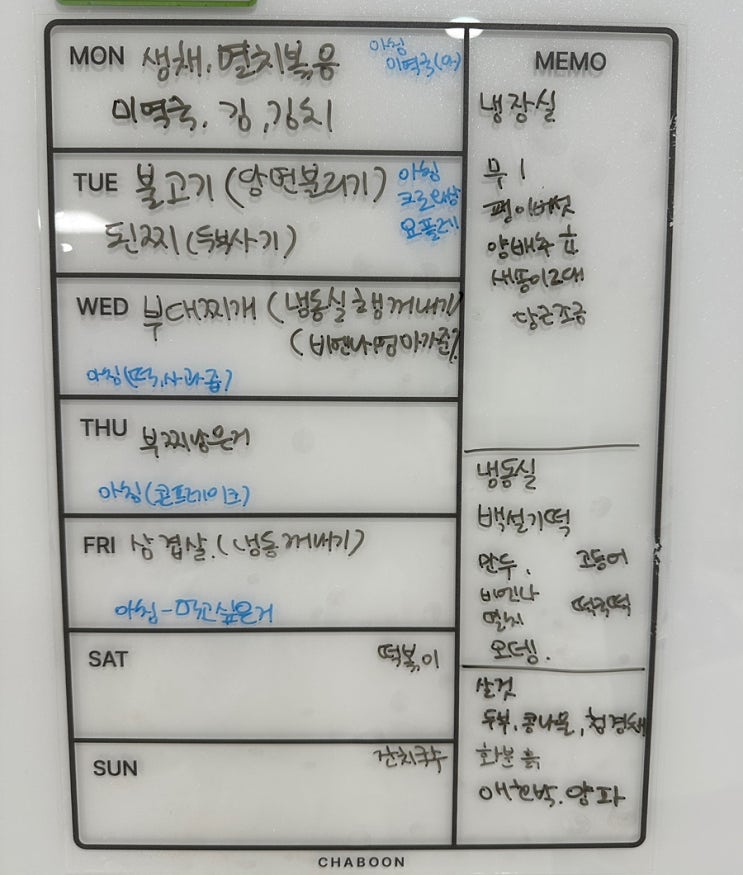 MON 생채, 멸치볶음
아침
미역국(어)
미역국, 김, 김치
TUE 불고기 (당면불리기)
아침
크로와상
요플레
된찌 (두부사기)
WED 부대찌개 (냉동실 햄꺼내기)
(비엔나, 엄마가준)
아침(떡, 사과즙)
THU 부찌남은거
아침(콘프레이크)
FRI 삼겹살. (냉동 꺼내기)
아침 - 먹고싶은거
SAT 떡볶이
SUN 잔치국수
MEMO
냉장실
무 1
팽이버섯
양배추
새송이2대
당근조금
냉동실
백설기떡
만두. 고등어
비엔나 떡국떡
멸치
오뎅.
살것
두부, 콩나물, 청경채
화분 흙
애호박. 양파
CHABOON